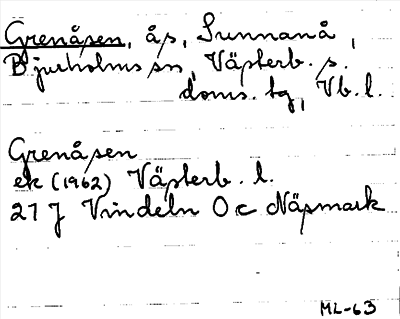 Grenåsen, ås, Sunnanå,
Bjurholms sn, Västerb. s.
doms. tg, Vb. l.
Grenåsen
ek (1962) Västerb. l.
21 J Vindeln 0 c Näsmark
ML-63